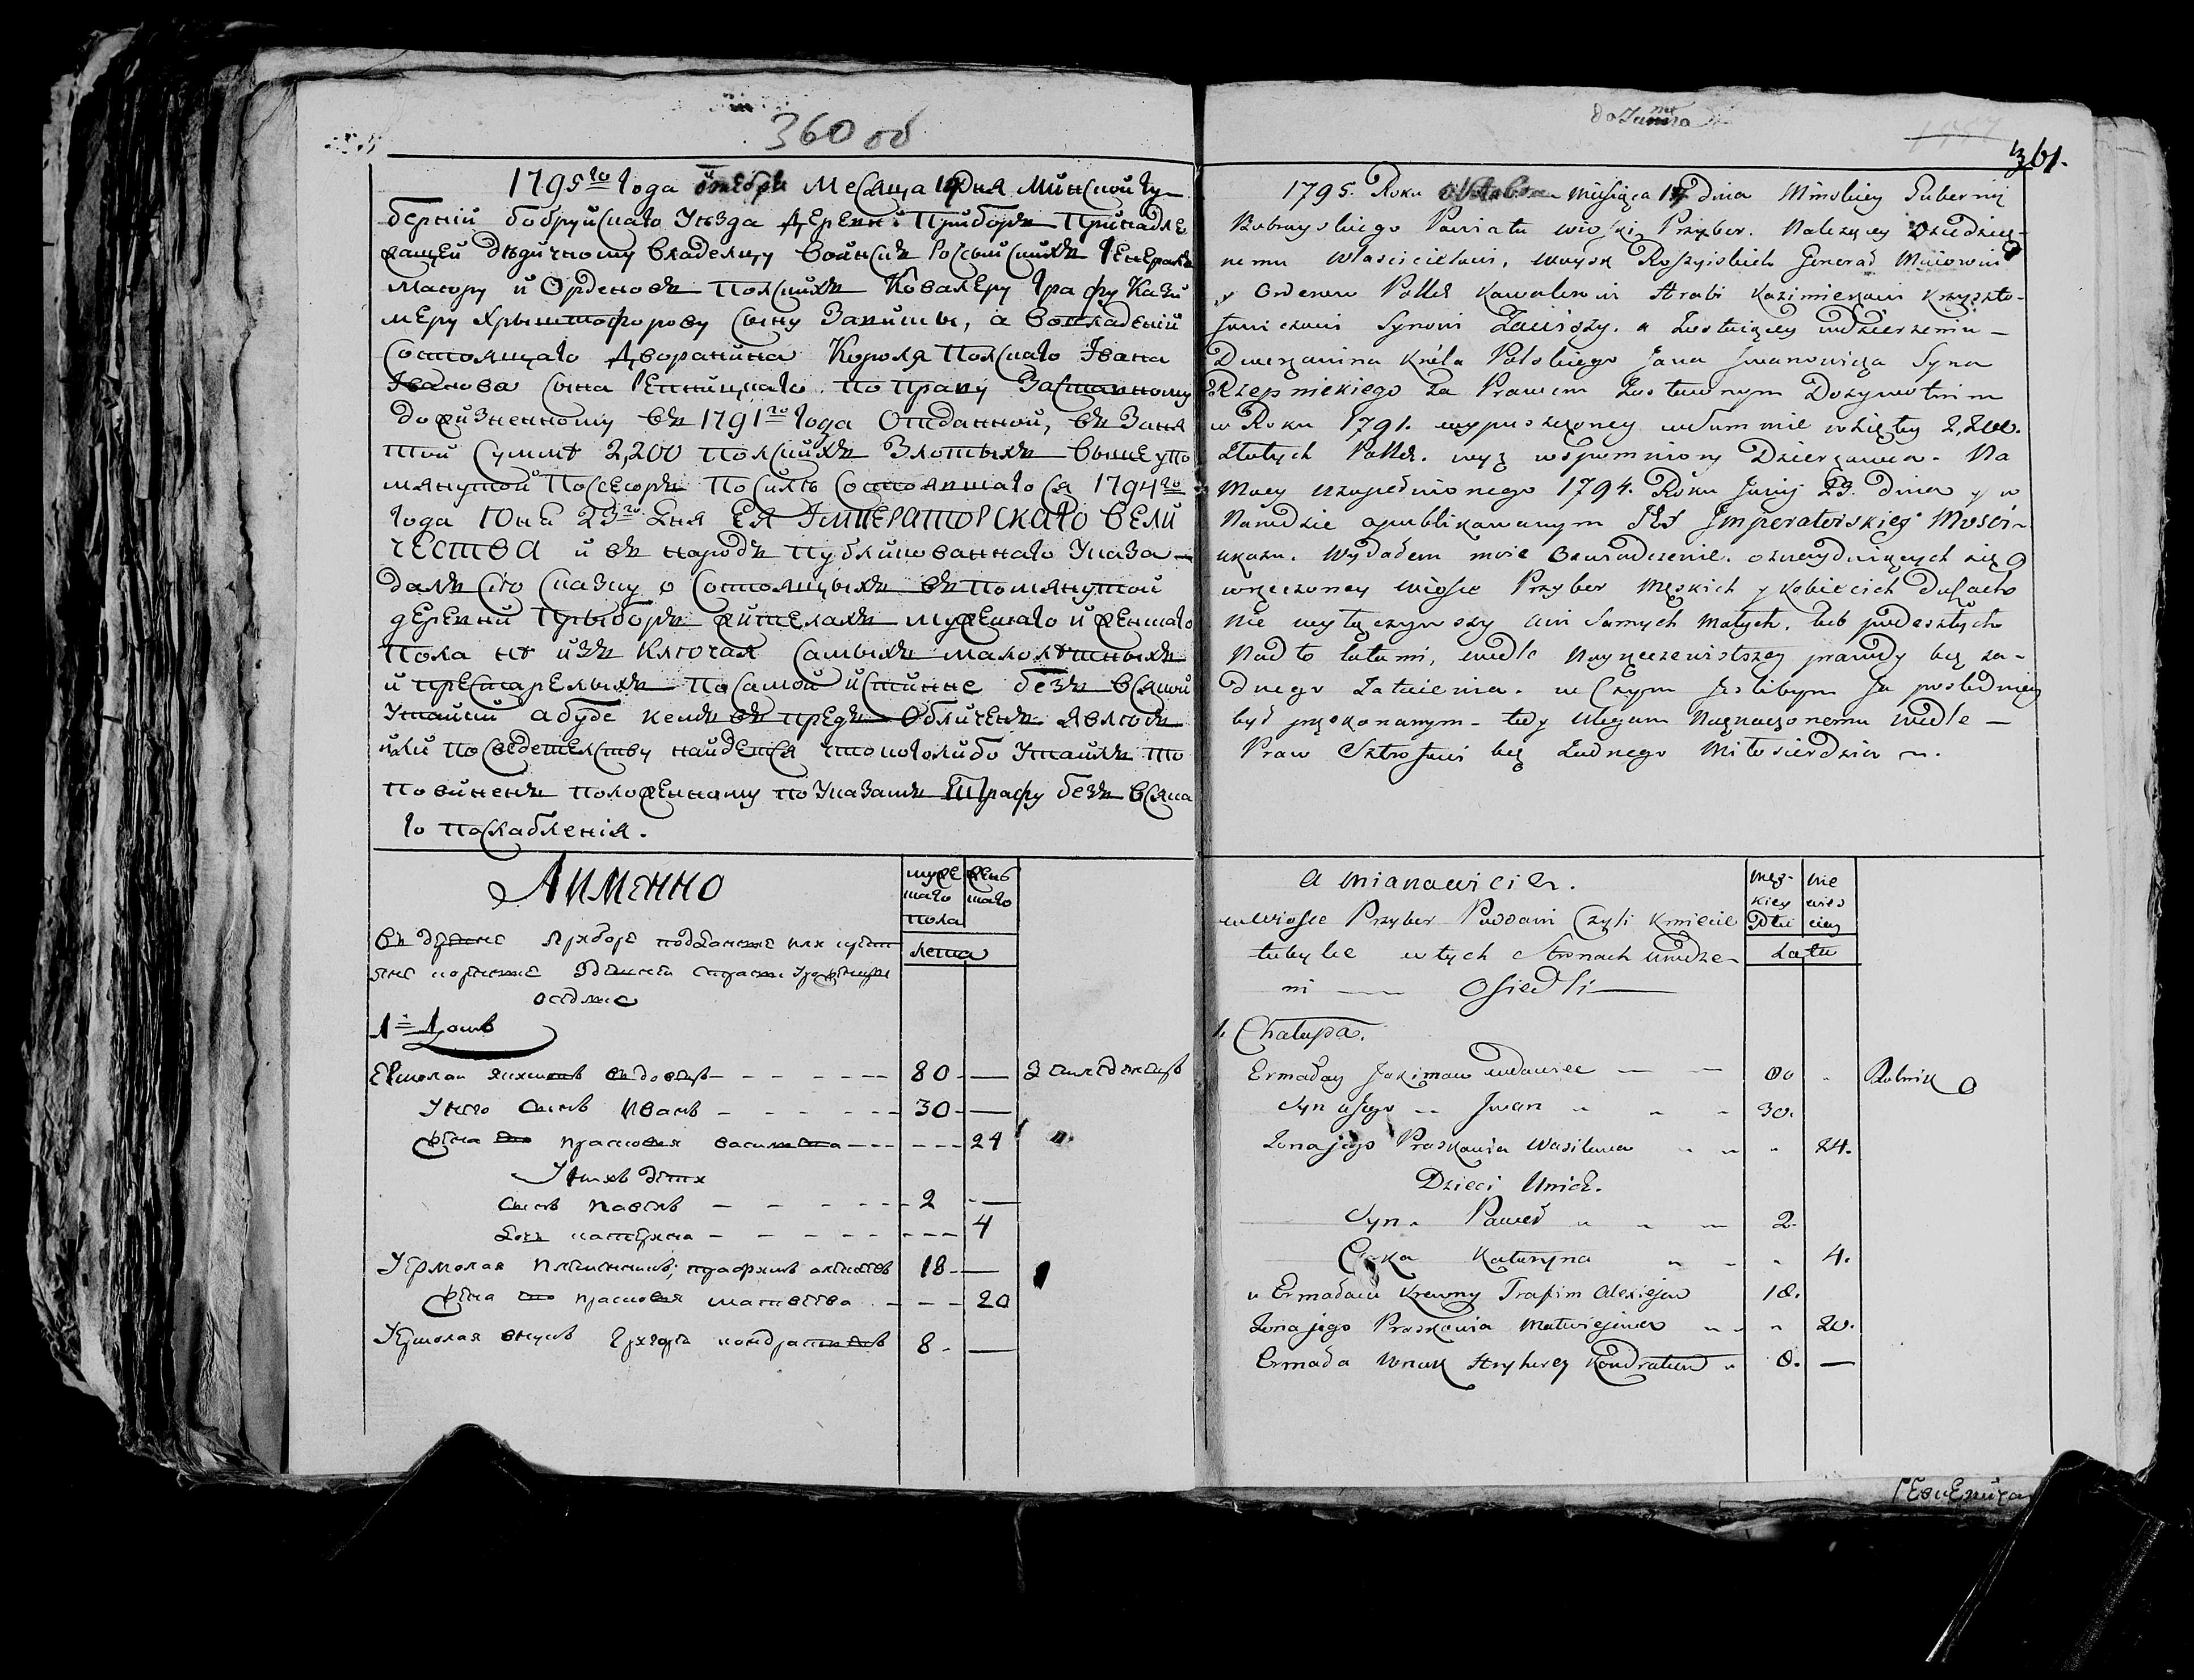 360 об
1795го Года октября Месяца 17 Дня Минской Гу-
берний бобруйскаго Уезда Деревни Приборъ Принадле
жащей дѣдичному владелцу Войскъ Россыйскихъ Генералъ
Маиору и Орденовъ Полскихъ Ковалеру Графу Кази
меру Хрыштофорову сыну Завишы, а вовладений
состоящаго Дворанина Короля Полскаго Івана
Іванова сына Репницкаго по праву Заставному
дожизненному въ 1791го Года Отданной, въ Заня
той сумме 2,200 полскихъ Злотыхъ вышеупо
мянутой Посесоръ По силе состоявшагося 1794го
Года Юня 23го Дня ЕЯ ІМПЕРАТОРСКАГО ВЕЛИ
ЧЕСТВА и въ народъ публикованнаго Указа
далъ сию сказку о состоящыхъ въ помянутой
деревни Прыборъ жителяхъ мужескаго и женскаго
пола не изъ ключая самыхъ малолетныхъ
и престарелыхъ по самой истинне безъ всякой
Утайки а буде кемъ въ предъ Обличенъ явлюсь
или по сведетелству найдется что коголибо Утаилъ то
повиненъ положенному по Указамъ Штрафу безъ всяка
го послабленія.
АИМЕННО
муже скаго пола
женскаго
лета
въ дрвне Прыборе подданые или крест
яне коренные здешней страны урожены
оседлые
1й Домъ
Ермолай Якимовъ вдовецъ 80 — Земледелецъ
У него сынъ Иванъ 30 —
жена его Прасковья Васильева 24
У нихъ дети
сынъ Павелъ 2 —
дочь Катерина 4
У Ермолая племянникъ Трафимъ Алексеевъ 18 —
жена его Прасковья Матвеева 20
У Ермолая внукъ Григорей Кондратьевъ 8 —
361.
1795. Roku Oktobra Miesiąca 17 Dnia Minskiey Gubernij
Bobruyskiego Powiatu wioski Przybor. Należącey Dziedzicz-
nemu Własicielowi, woysk Roszyiskich Generał Maiorowi
y Orderow Polsk Kawalerowi Hrabi Kazimierzowi Krzyszto-
fowiczowi Synowi Zawiszy. a Zostaiącey w dzierżeniu
Dworzanina Króla Polskiego Jana Jwanowicza Syna
Rzepnickiego Za Prawem Zastawnym Dożywotnim
w Roku 1791. wypuszczoney w summie wziętey 2,200.
Złotych Polsk. wyż wspomniony Dzierżawca. Na
Mocy uzupełnionego 1794. Roku Junij 23. dnia y w
Narodzie opublikowanym JEJ Jmperatorskiej Mosci
ukazu. Wydałem moie Oswiadczenie. o znayduiących się
w rzeczoney wiosce Przybor Męskich y kobiecich duszach
nie wyłączywszy ani samych małych. lub podeszłych
Nad to latami, wedle Nayrzeczewistszey prawdy bez ża-
dnego Zataienia. w Czym Jeslibym Ja posledniey
był przekonanym - tedy Ulegam Naznaczonemu wedle
Praw Sztrofowi bez żadnego Miłosierdzia
a mianowicie.
męz- kiey Płci
nie wieś ciey
Lata
w Wiosce Przybor Poddani Czyli Kmiecie
tubylce w tych Stronach urodze-
ni — Osiedli —
1. Chałupa.
Ermołay Jakimow wdowiec 80 Rolnik
Syn Jego Jwan 30.
Żona jego Praskowia Wasilewa 24.
Dzieci Unich.
Syn Paweł 2.
Corka Kataryna 4.
u Ermołaia Krewny Trafim Alexiejew 18.
Żona jego Praskowia Matwiejewa 20.
Ermoła Wnuk Hryhorey Kondratiew 8. —